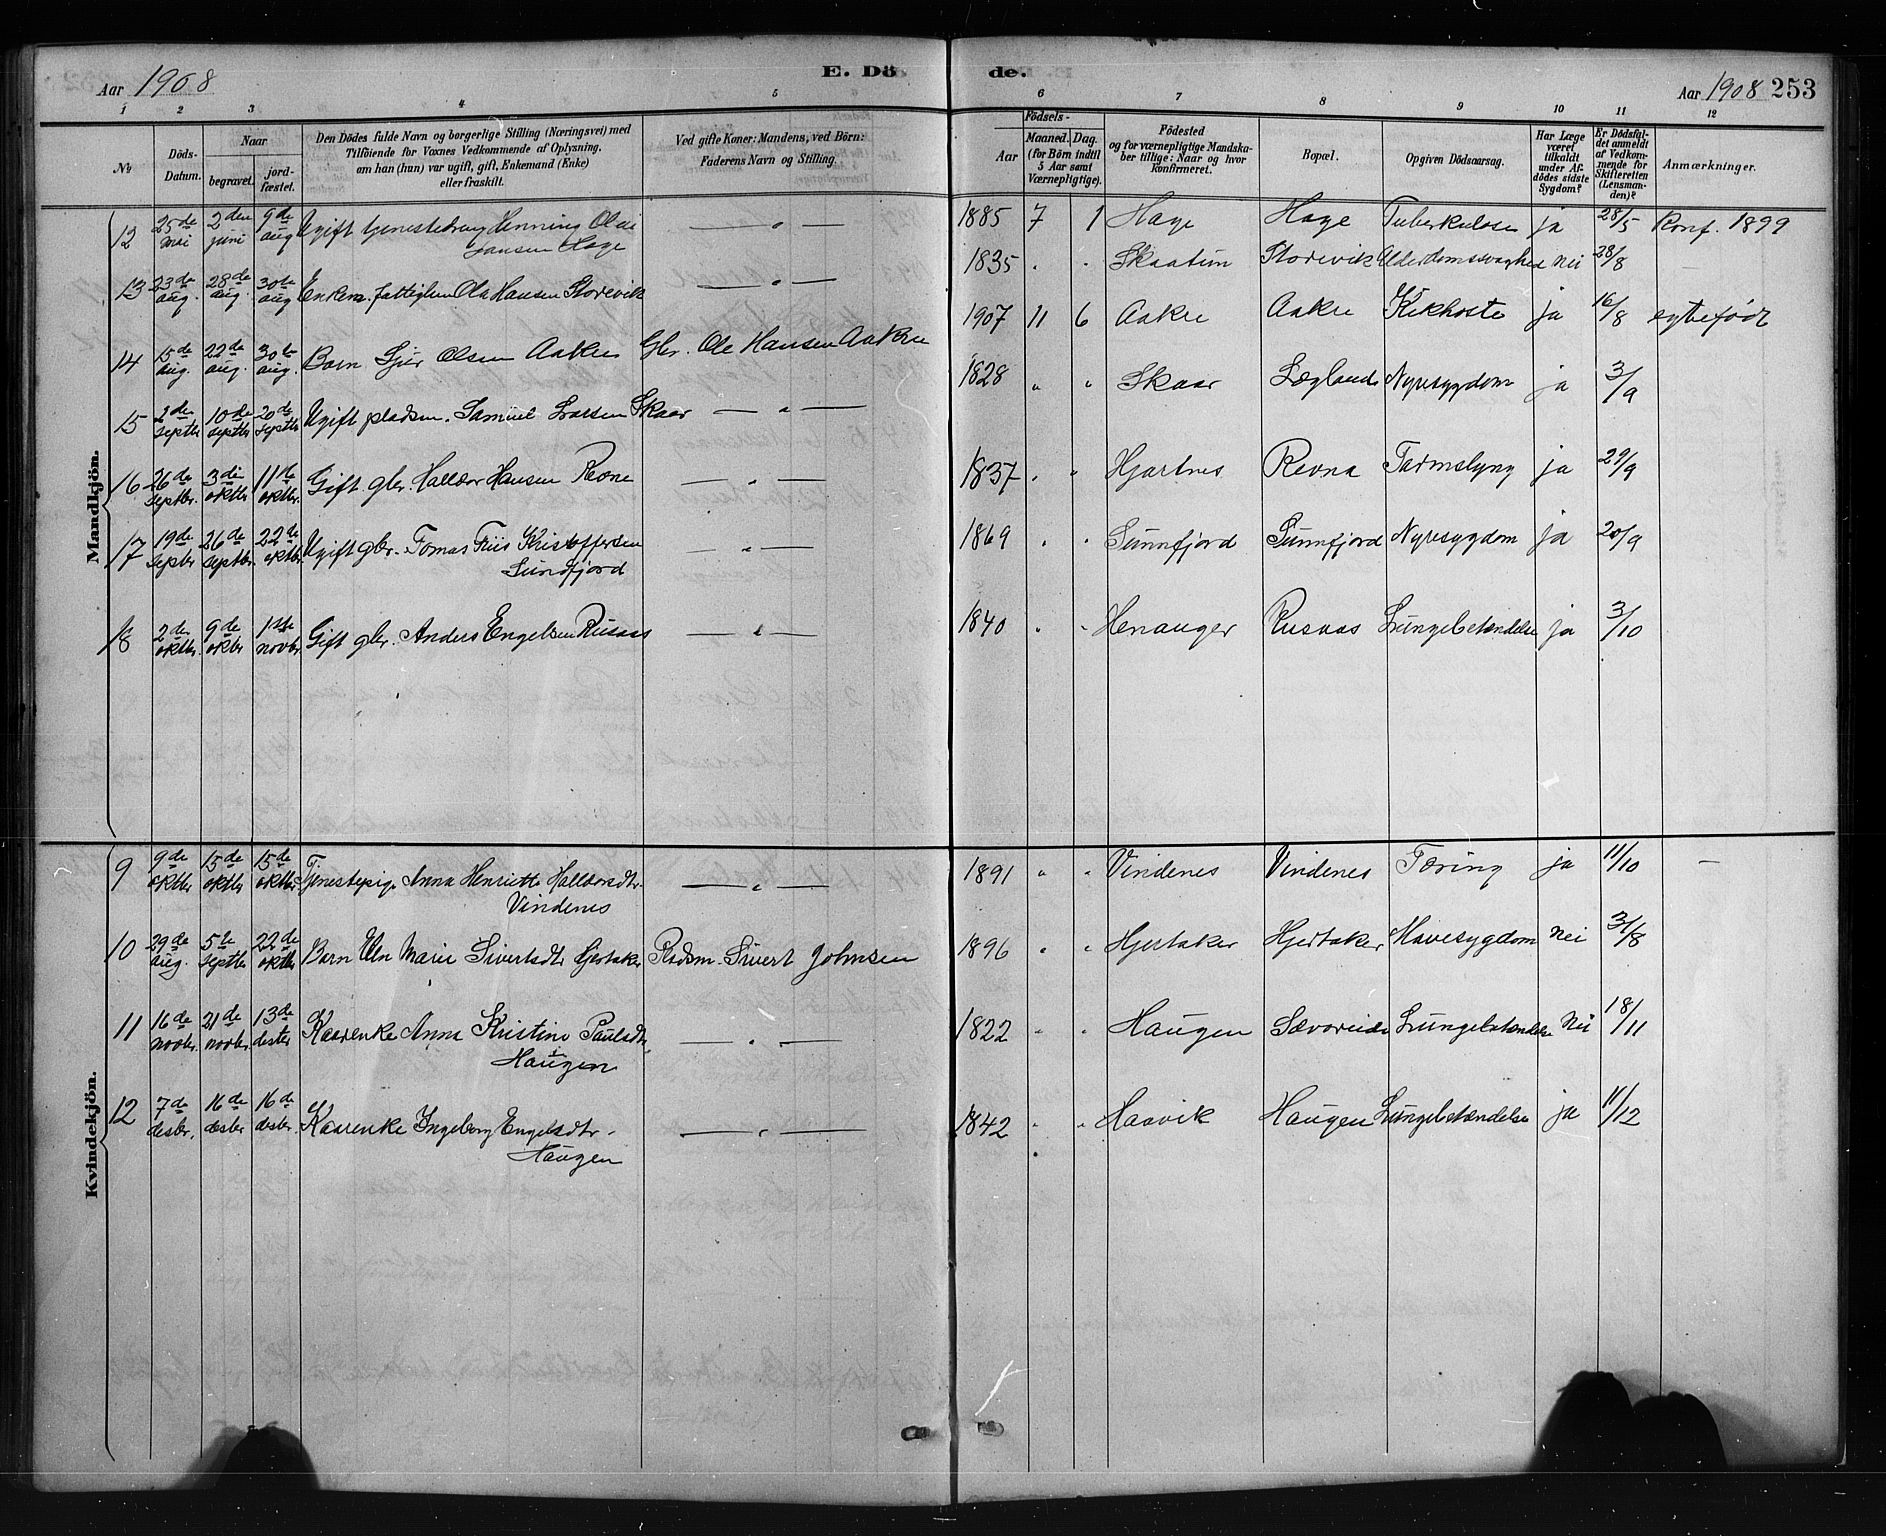 Aar 1908
E. Döde.
Aar 1908 253
1 2 3 4 5 6 7 8 9 10 11 12
No
Döds-Datum.
Naar
begravet.
jordfæstet.
Den Dödes fulde Navn og borgerlige Stilling (Næringsvei) med
Tilföiende for Voxnes Vedkommende af Oplysning,
om han (hun) var ugift, gift, Enkemand (Enke)
eller fraskilt.
Ved gifte Koner: Mandens, ved Börn:
Faderens Navn og Stilling.
Födsels-
Aar
Maaned. Dag.
(for Börn indtil
5 Aar samt
Værnepligtige).
Födested
og for værnepligtige Mandska-
ber tillige: Naar og hvor
konfirmeret.
Bopæl.
Opgiven Dödsaarsag.
Har Læge
været
tilkaldt
under Af-
dödes sidste
Sygdom?
Er Dödsfal-
det anmeldt
af Vedkom-
mende for
Skifteretten
(Lensman-
den)?
Anmærkninger.
Mandkjön.
12 25de mai 2den juni 9de aug Ugift tjenestedreng Henning Olai Jansen Hage — " — 1885 7 1 Hage Hage Tuberkulose ja 28/5 Konf. 1899
13 23de aug. 28de aug. 30te aug Enkem. fattiglem Ola Hansen Storevik — " — 1835 " " Skaatun Storevik Alderdomssvaghed nei 28/8 —
14 15de aug. 22de aug. 30te aug. Barn Sjur Olsen Aakre Gbr. Ole Hansen Aakre 1907 11 6 Aakre Aakre Kikhoste ja 16/8 egtefødt
15 2de septbr 10de septbr 20de septbr Ugift pladsm. Samuel Larsen Skaar — " — 1828 " " Skaar Lægland Nyresygdom ja 3/9
16 26de septbr. 3die oktbr 11te oktbr. Gift gbr. Halldor Hansen Revne — " — 1837 " " Hjartnes Revna Tarmslyng ja 29/9
17 19de septbr 26de septbr. 22de oktbr Ugift gbr. Tomas Friis Kristoffersen Sundfjord — " — 1869 " " Sunnfjord Sunnfjord Nyresygdom ja 20/9
18 2de oktbr. 9de oktbr 1ste novbr. Gift gbr. Anders Engelsen Rusaas — " — 1840 " " Henanger Rusaas Lungebetændelse ja 3/10
Kvindekjön.
9 9de oktbr 15de oktbr 15de oktbr. Tjenestepige Anna Henriette Halldorsdtr. Vindenes — " — 1891 " " Vindenes Vindenes Tæring ja 11/10 —
10 29de aug. 5te septbr 22de oktbr Barn Marie Sivertsdtr Hjertaker Pladsm. Sivert Johnsen 1896 " " Hjertaker Hjertaker Mavesygdom nei 31/8
11 16de novbr. 21de novbr 13de desbr Kaarenke Anna Kristine Paulsdtr. Haugen — " — 1822 " " Haugen Sævareide Lungebetændelse nei 18/11
12 7de desbr. 16de desbr 16de desbr. Kaarenke Ingeborg Engelsdtr. Haugen — " — 1842 " " Haavik Haugen Lungebetændelse ja 11/12